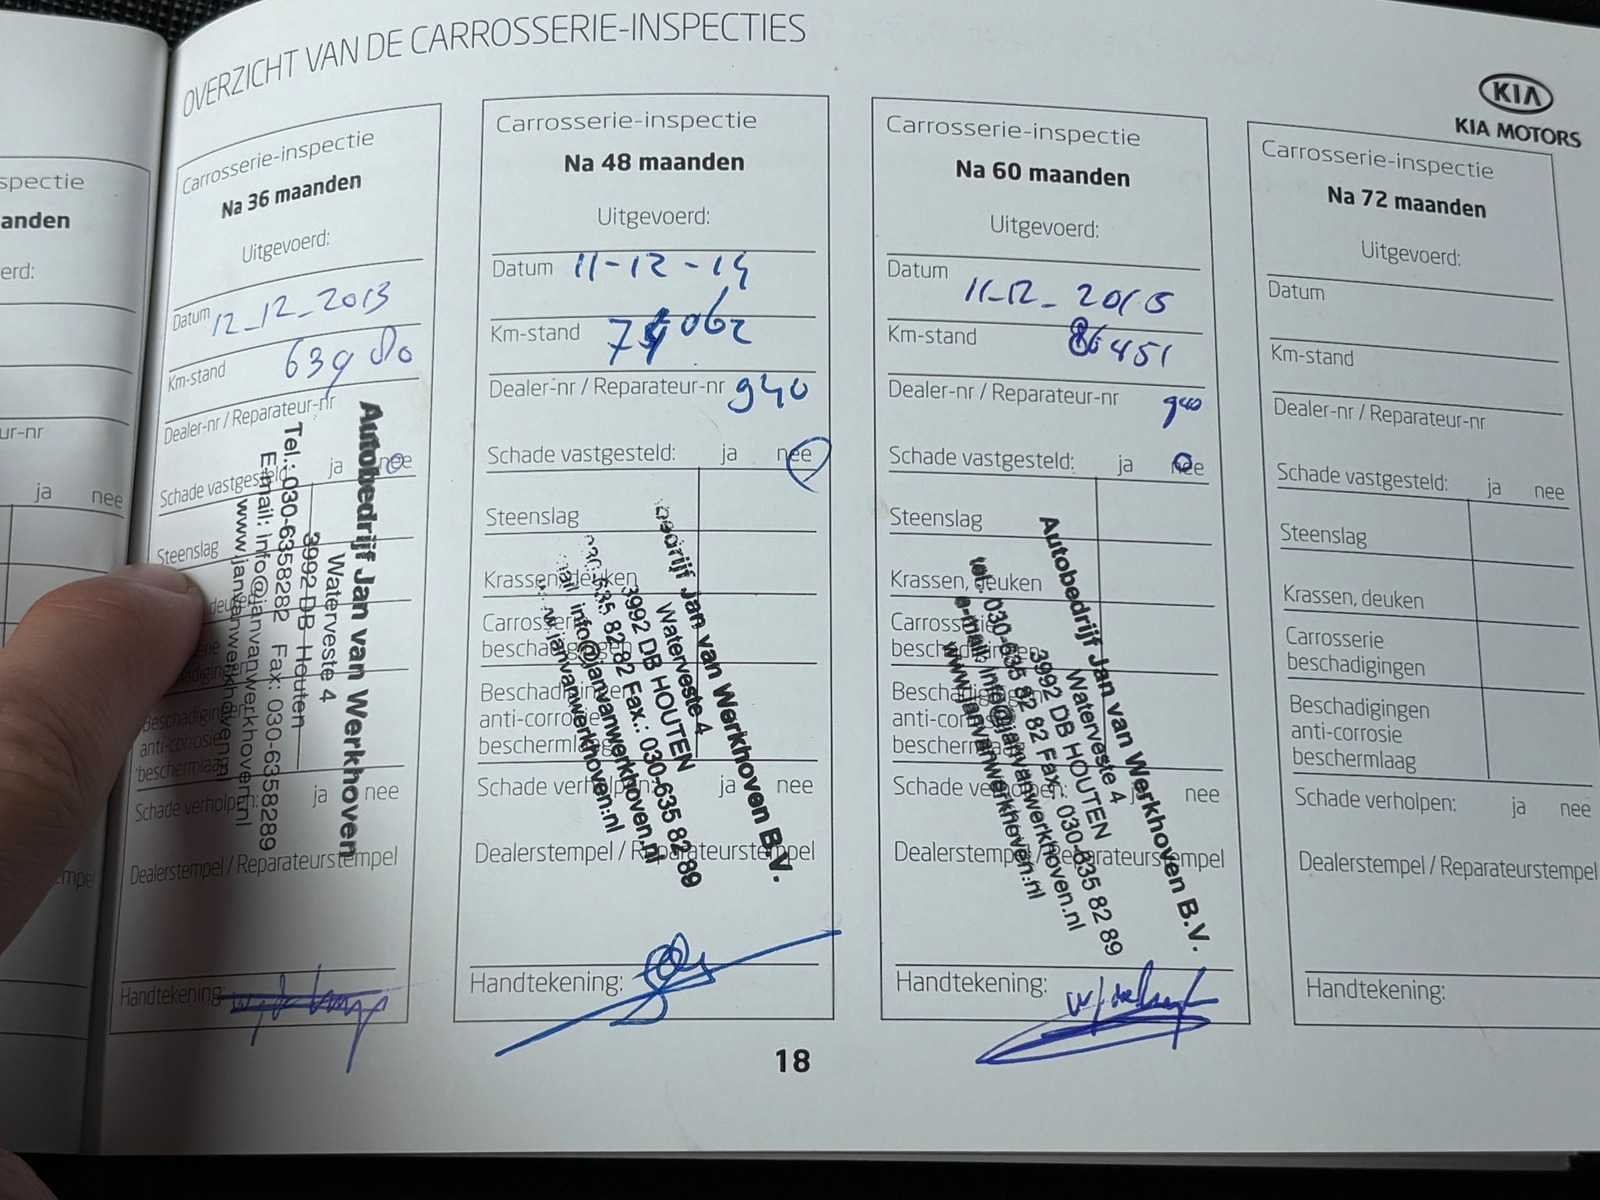 OVERZICHT VAN DE CARROSSERIE-INSPECTIES
KIA
KIA MOTORS
spectie
anden
erd:
ur-nr
ja nee
Carrosserie-inspectie
Na 36 maanden
Uitgevoerd:
Datum 12_12_2013
Km-stand
Dealer-nr / Reparateur-nr
Schade vastgesteld: ja nee
Steenslag
Beschadigingen
anti-corrosie
beschermlaag
Schade verholpen: ja nee
Dealerstempel / Reparateurstempel
Handtekening:
Autobedrijf Jan van Werkhoven
Waterveste 4
3992 DB Houten
Tel.: 030-6358282 Fax: 030-6358289
E-mail: info@janvanwerkhoven.nl
www.janvanwerkhoven.nl
Carrosserie-inspectie
Na 48 maanden
Uitgevoerd:
Datum 11-12-14
Km-stand
Dealer-nr / Reparateur-nr 940
Schade vastgesteld: ja nee
Steenslag
Krassen, deuken
Carrosserie
beschadigingen
Beschadigingen
anti-corrosie
beschermlaag
Schade verholpen: ja nee
Dealerstempel / Reparateurstempel
Handtekening:
Jan van Werkhoven B.V.
Waterveste 4
3992 DB HOUTEN
635 82 82 Fax.: 030-635 82 89
info@janvanwerkhoven.nl
janvanwerkhoven.nl
Carrosserie-inspectie
Na 60 maanden
Uitgevoerd:
Datum 11-12-2015
Km-stand 86451
Dealer-nr / Reparateur-nr 940
Schade vastgesteld: ja nee
Steenslag
Krassen, deuken
Carrosserie
beschadigingen
Beschadigingen
anti-corrosie
beschermlaag
Schade verholpen: ja nee
Dealerstempel / Reparateurstempel
Handtekening:
Autobedrijf Jan van Werkhoven B.V.
Waterveste 4
3992 DB HOUTEN
tel.: 030-635 82 82 Fax.: 030-635 82 89
e-mail: info@janvanwerkhoven.nl
www.janvanwerkhoven.nl
Carrosserie-inspectie
Na 72 maanden
Uitgevoerd:
Datum
Km-stand
Dealer-nr / Reparateur-nr
Schade vastgesteld: ja nee
Steenslag
Krassen, deuken
Carrosserie
beschadigingen
Beschadigingen
anti-corrosie
beschermlaag
Schade verholpen: ja nee
Dealerstempel / Reparateurstempel
Handtekening:
18